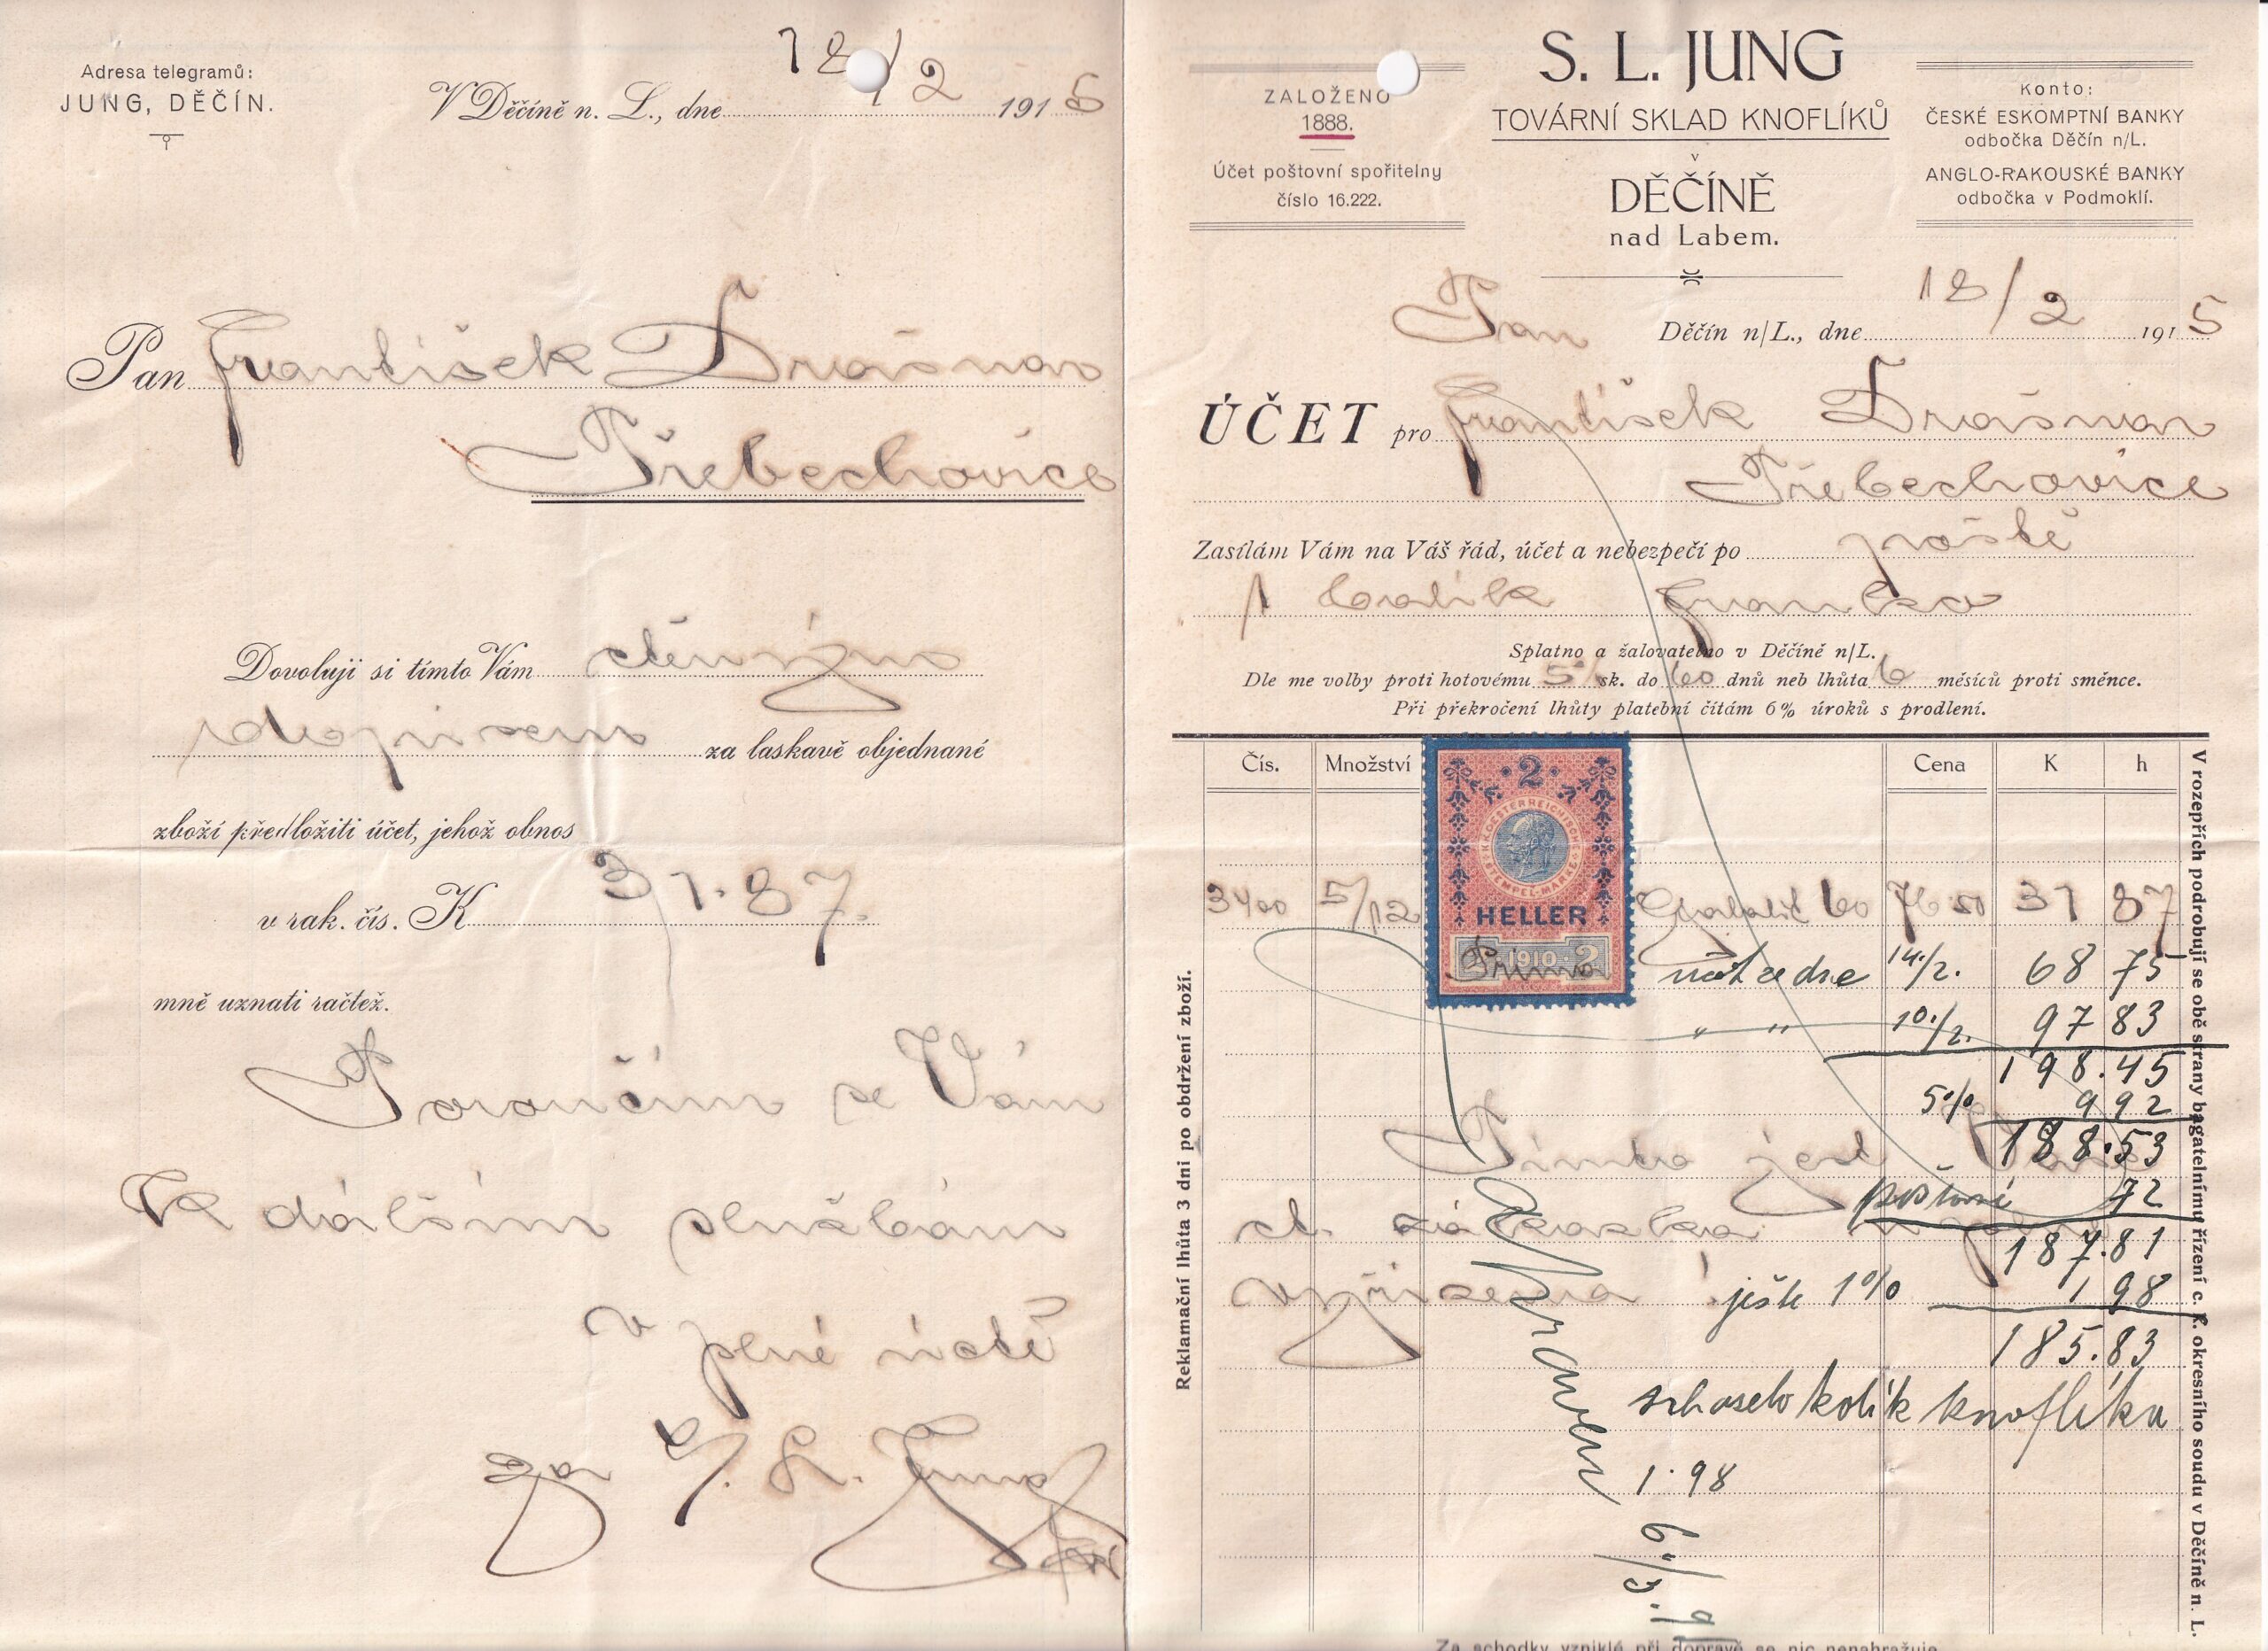 Adresa telegramů:
JUNG, DĚČÍN.
V Děčíně n. L., dne 18/2 1915
Pan František Drašnar
Třebechovice
Dovoluji si tímto Vám ctěným
rukopisem za laskavě objednané
zboží předložiti účet, jehož obnos
v rak. čís. K 31.87
mně uznati račtež.
Poroučím se Vám
k dalším službám
v plné úctě
za S. L. Jung
S. L. JUNG
TOVÁRNÍ SKLAD KNOFLÍKŮ
v
DĚČÍNĚ
nad Labem.
ZALOŽENO
1888.
Účet poštovní spořitelny
číslo 16.222.
Konto:
ČESKÉ ESKOMPTNÍ BANKY
odbočka Děčín n/L.
ANGLO-RAKOUSKÉ BANKY
odbočka v Podmoklí.
Pan Děčín n/L., dne 18/2 1915
ÚČET pro František Drašnar
Třebechovice
Zasílám Vám na Váš řád, účet a nebezpečí po poště
1 balík franko
Splatno a žalovatelno v Děčíně n/L.
Dle me volby proti hotovému 5% sk. do 60 dnů neb lhůta 6 měsíců proti směnce.
Při překročení lhůty platební čítám 6% úroků s prodlení.
Čís. Množství Cena K h
2
K.K. OESTERREICHISCHE STEMPEL-MARKE
HELLER
2 1910 2
3400 5/12 60 76.50 31 87
Prima účet ze dne 14./2. 68 75
" " 10./2. 97 83
198.45
5% 9 92
188.53
Tímto jest
poštovné 72
ct. zakázka
187.81
vyřízena! ještě 1% 1 98
185.83
scházelo kolik knoflíku
1.98
Zapraven 6./3.
Reklamační lhůta 3 dni po obdržení zboží.
V rozepřích podrobují se obě strany bagatelnímu řízení c. k. okresního soudu v Děčíně n. L.
Za schodky vzniklé při dopravě se nic nenahražuje.